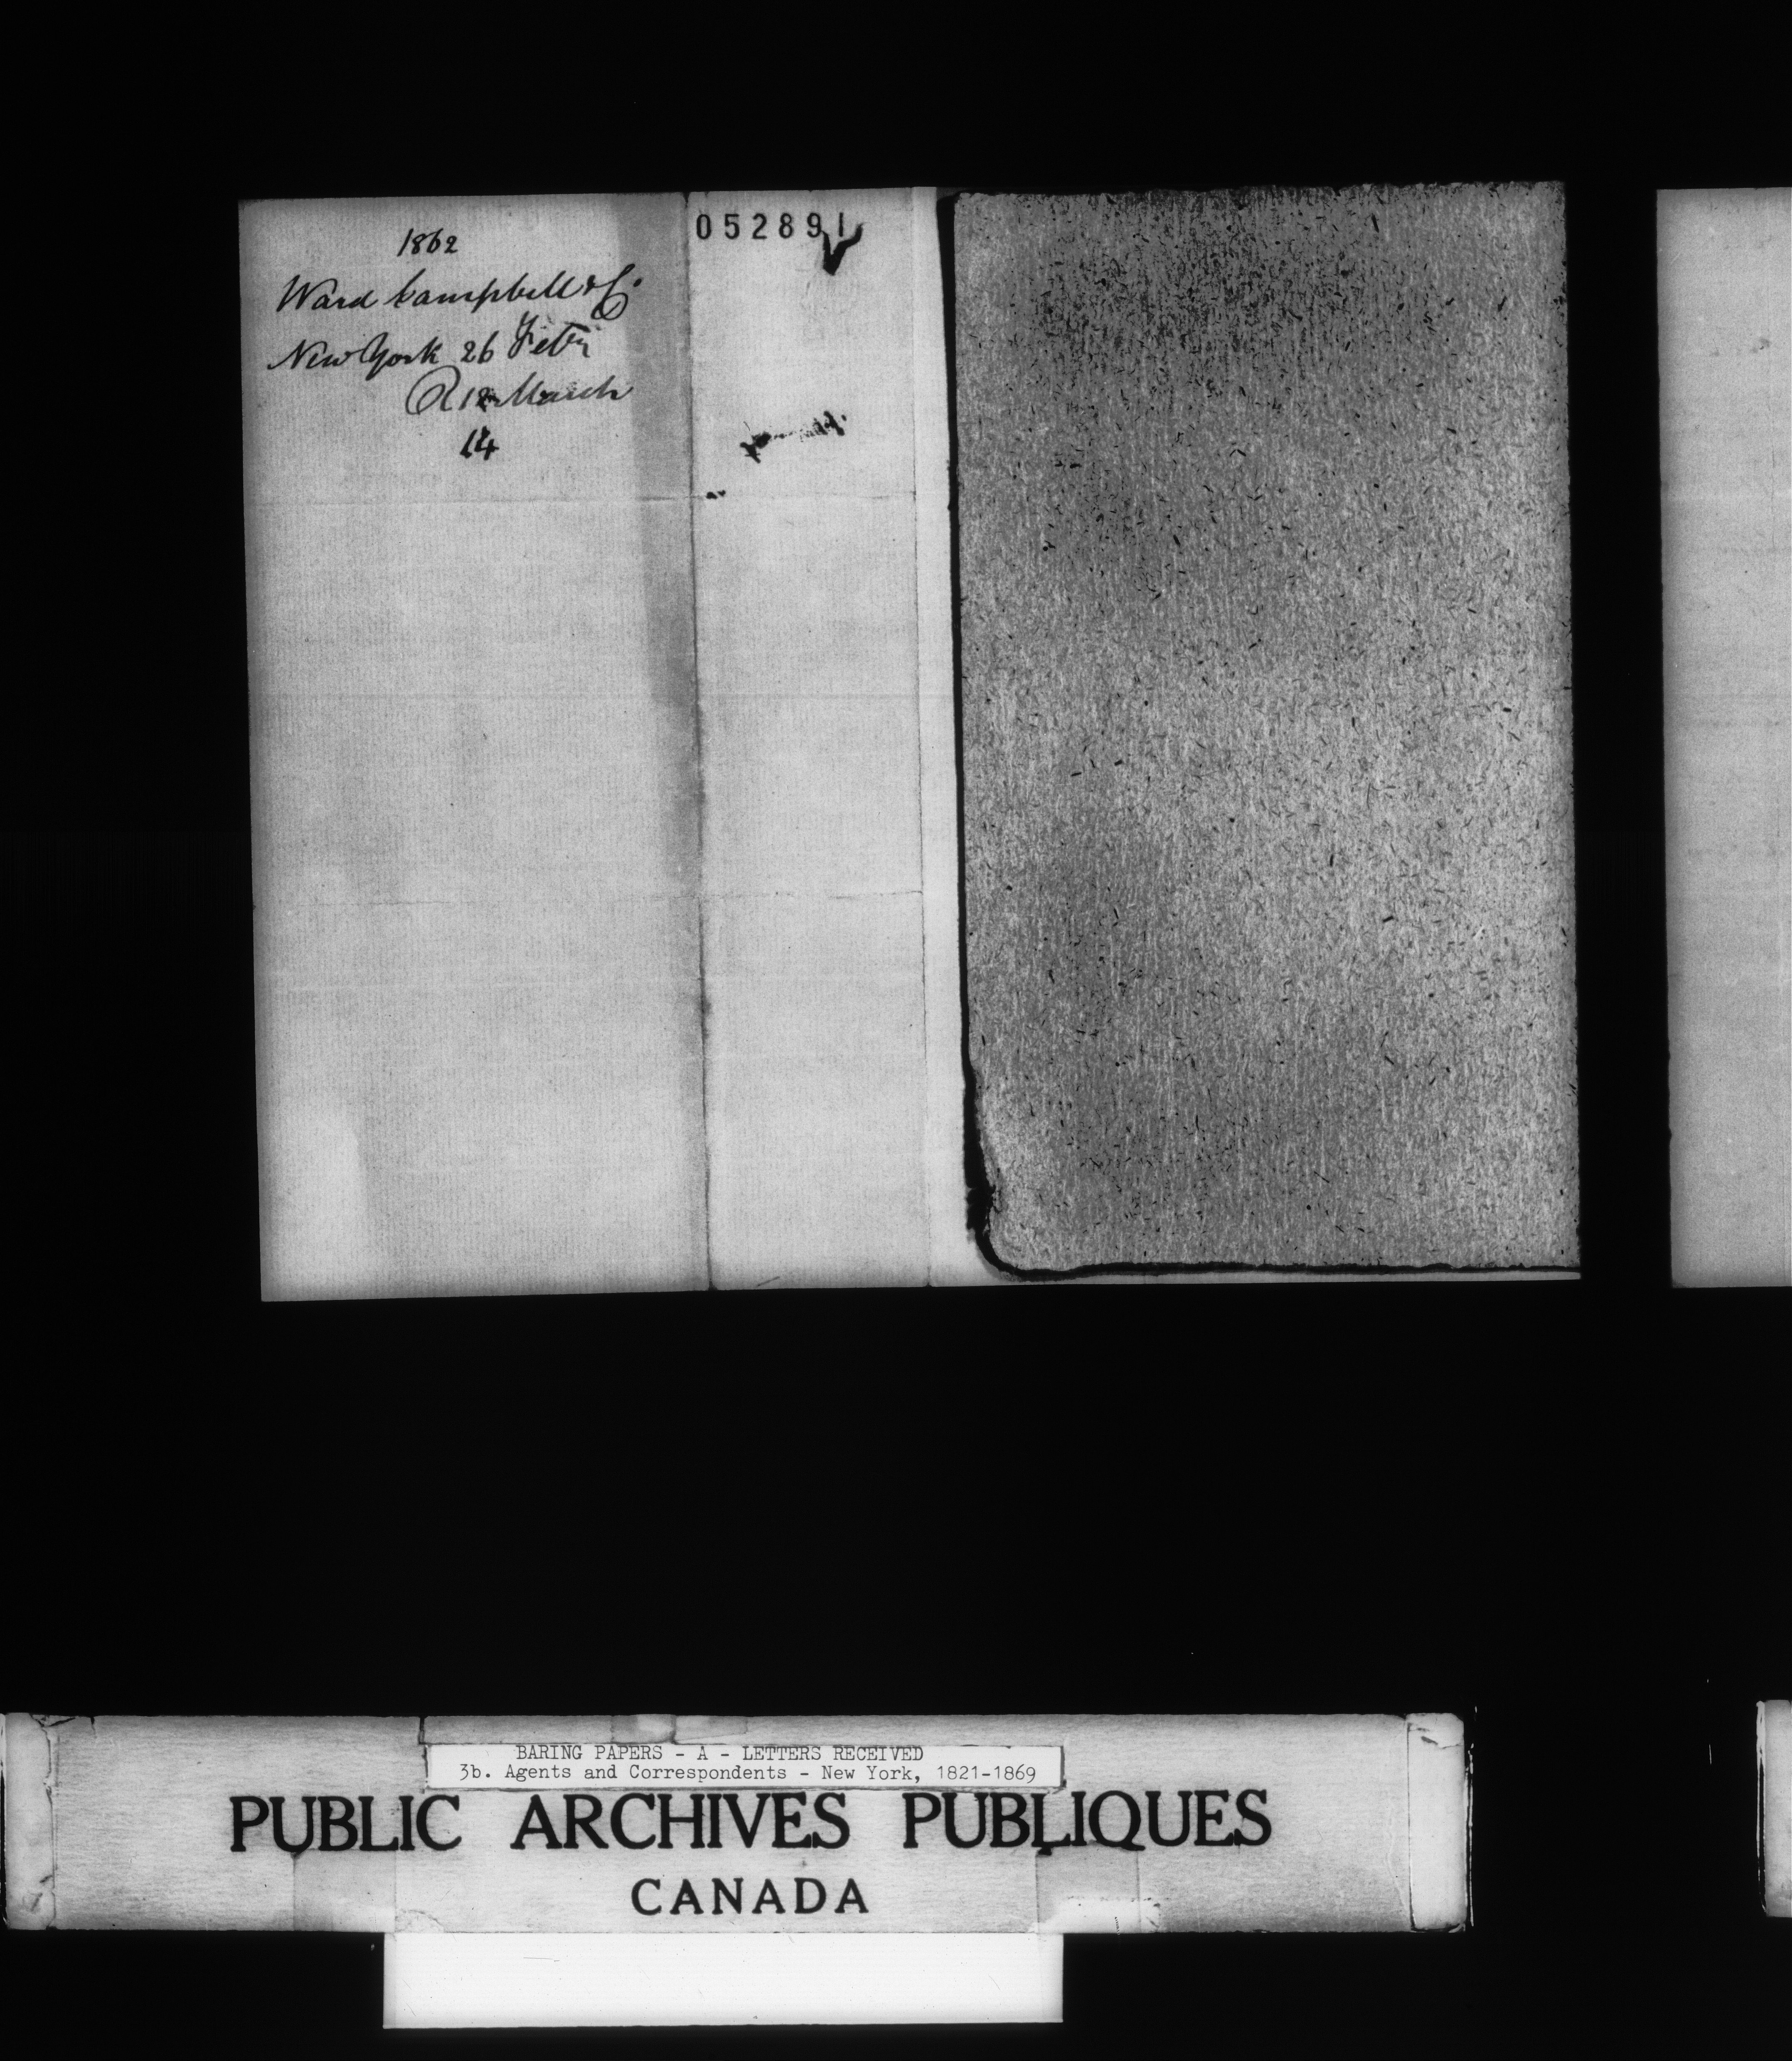 1862
Ward Campbell & Co.
New York 26 Feby
R 12 March
14
052891
BARING PAPERS - A - LETTERS RECEIVED
3b. Agents and Correspondents - New York, 1821-1869
PUBLIC ARCHIVES PUBLIQUES
CANADA